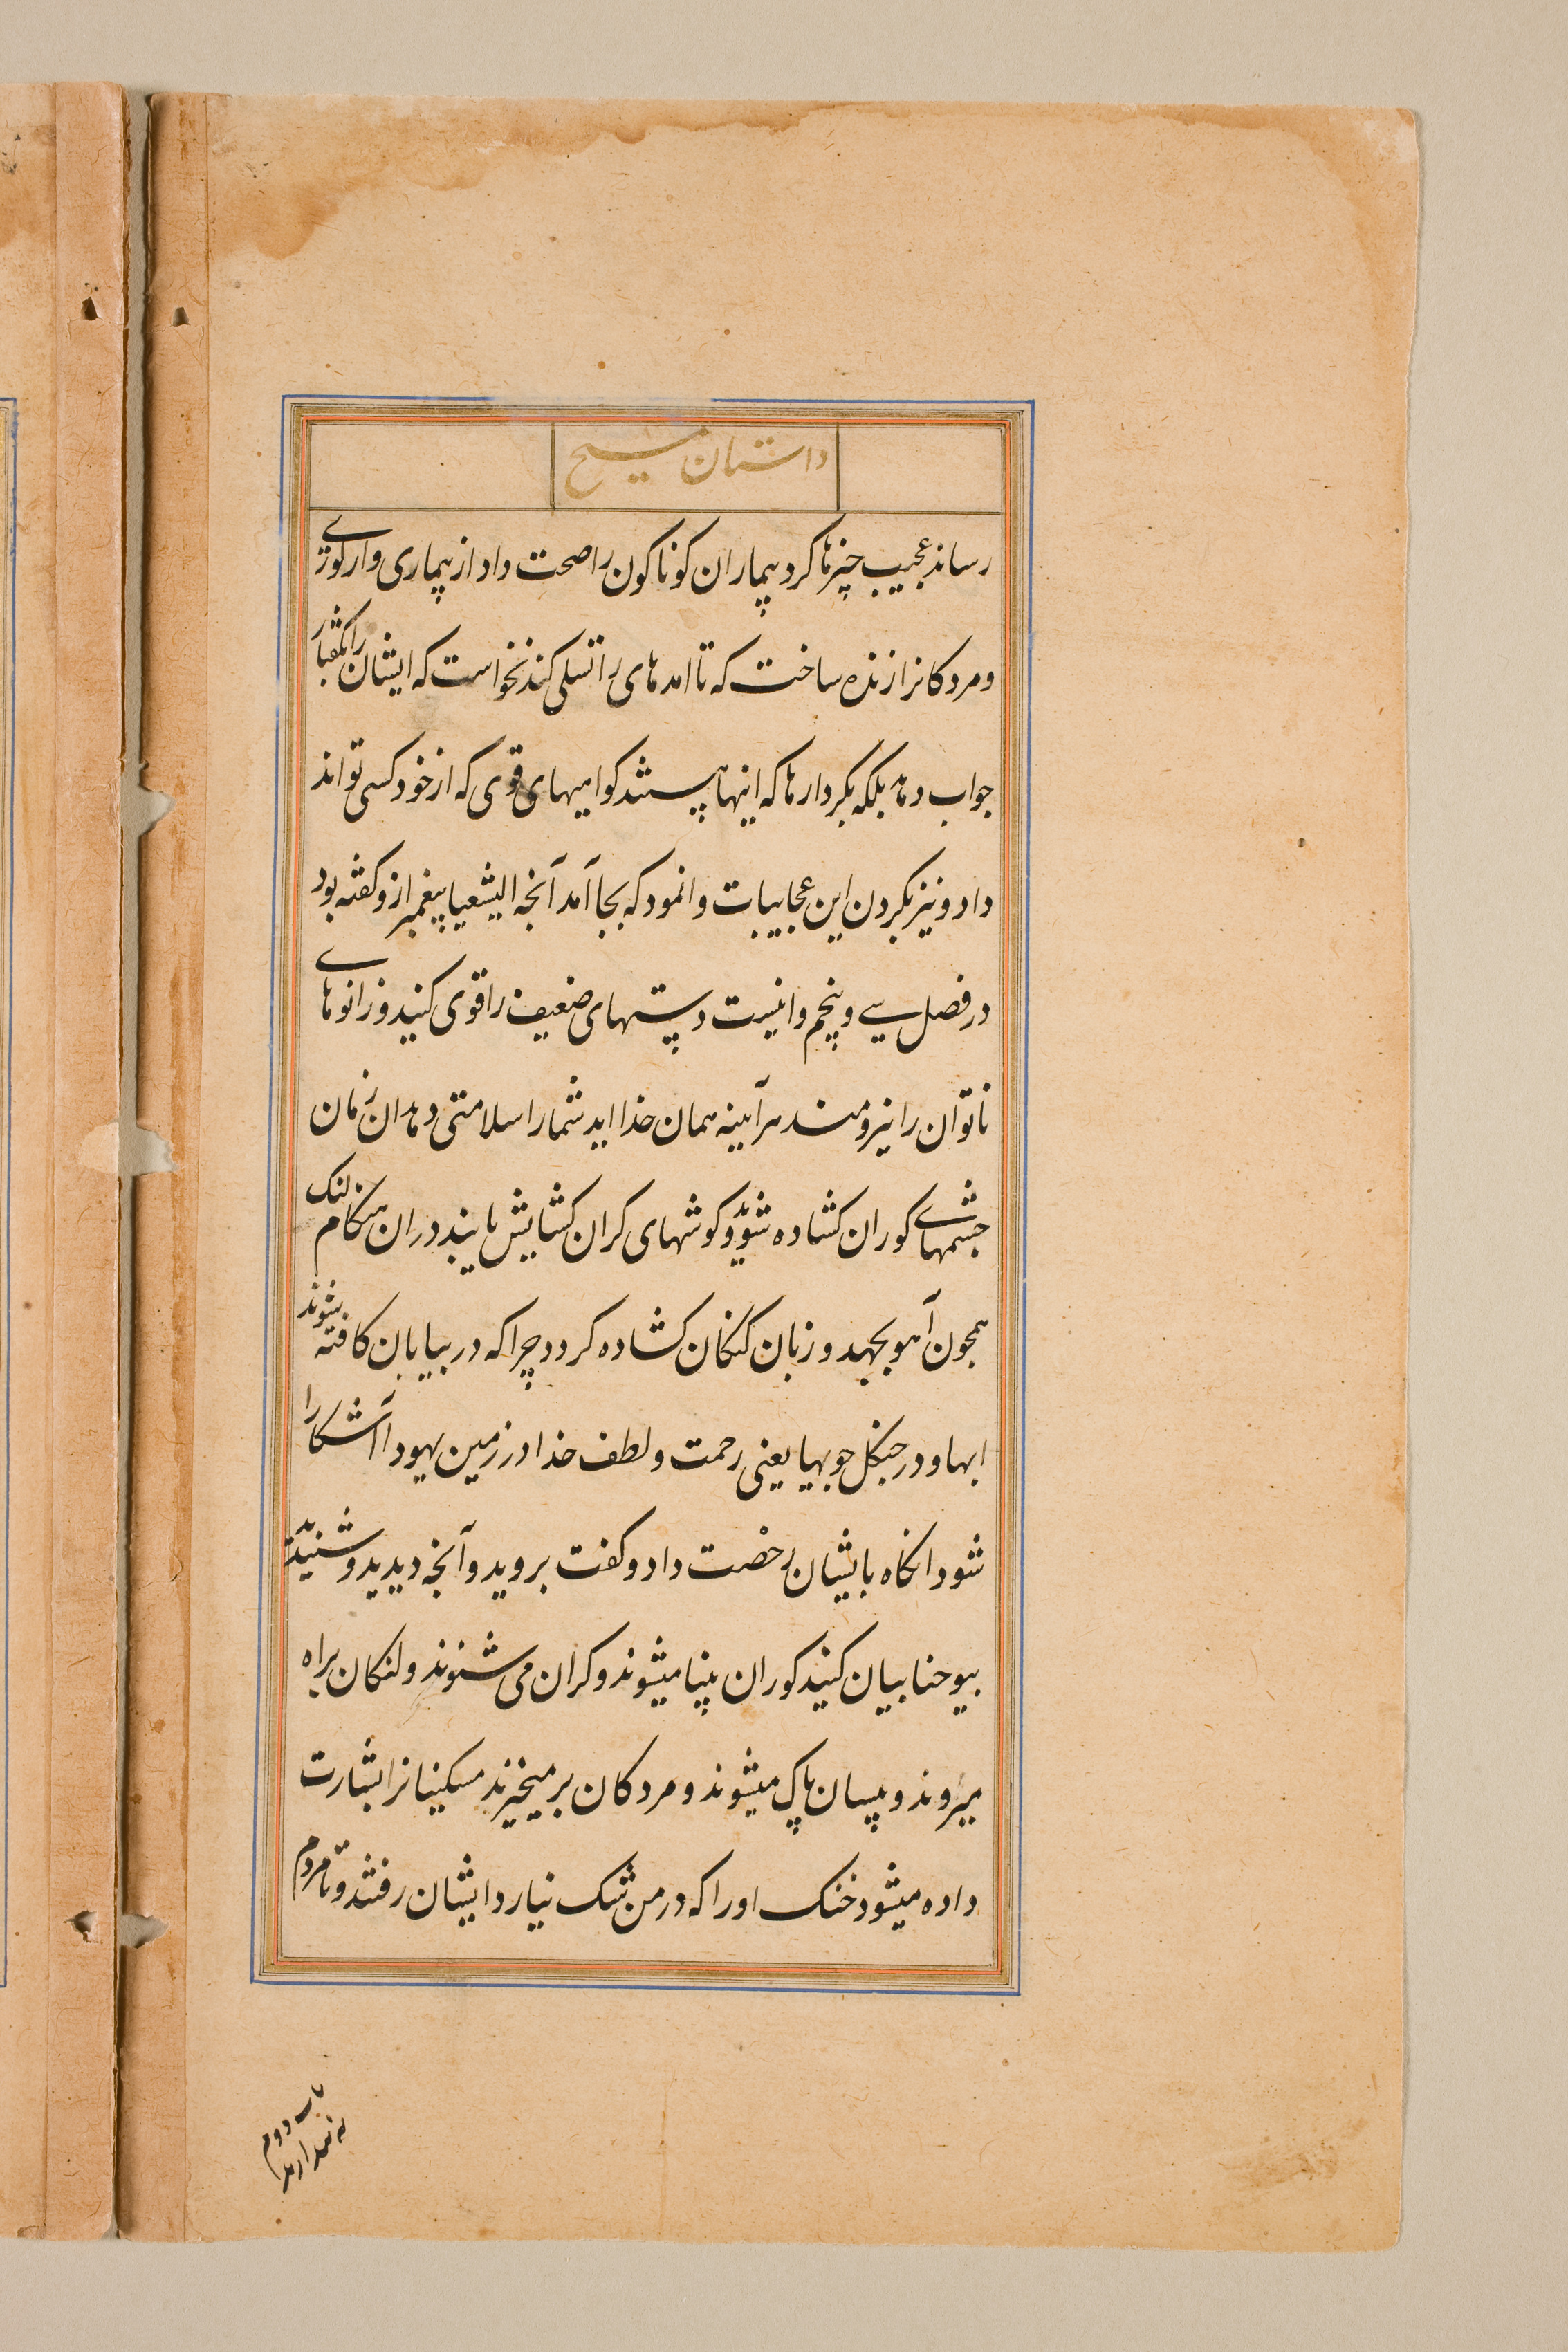 داستان مسیح
رساند عجیب چیزها کرد بیماران کوناکون را صحت داد از بیماری و از کوری
و مردکانرا زنده ساخت که تا امدهای را تسلی کند نخواست که ایشان را بگفتار
جواب دهد بلکه بکردارها که اینها هستند کواهیهای قوی که از خود کسی تواند
داد و نیز بکردن این عجایبات وانمود که بجا آمد آنچه ایشعیا پیغمبر ازو کفته بود
در فصل سی و پنجم و انیست دستهای ضعیف را قوی کنید و زانوهای
ناتوان را نیرومند هرآینه همان خدا اید شما را سلامتی دهد ان زمان
چشمهای کوران کشاده شوند و کوشهای کران کشایش یابند دران هنکام لنک
همچون آهو بجهد و زبان کنکان کشاده کردد چرا که در بیابان کافته شوند
ابها و در جنکل جویها یعنی رحمت و لطف خدا در زمین یهودا آشکارا
شود انکاه بایشان رخصت داد و کفت بروید و آنچه دیدید و شنیدید
بیوحنا بیان کنید کوران بینا میشوند و کران می شنوند و لنکان براه
میروند و پیسان پاک میشوند و مردکان برمیخیزند مسکینانرا بشارت
داده میشود خنک اورا که در من شک نیارد ایشان رفتند و تا مردم
باب دوم